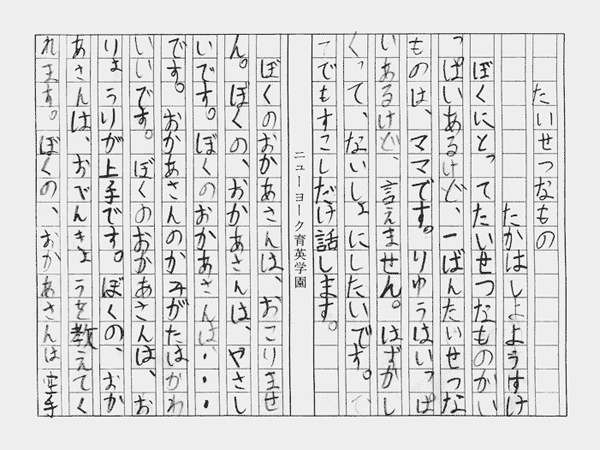 たいせつなもの
たかはしようすけ
ぼくにとってたいせつなものがい
っぱいあるけど、一ばんたいせつな
ものは、ママです。りゆうはいっぱ
いあるけど、言えません。はずかし
くって、ないしょにしたいです。で
でもすこしだけ話します。
ニューヨーク育英学園
ぼくのおかあさんは、おこりませ
ん。ぼくの、おかあさんは、やさし
いです。ぼくのおかあさんは、・・・
です。おかあさんのかみがたはかわ
いいです。ぼくのおかあさんは、お
りょうりが上手です。ぼくの、おか
あさんは、おべんきょうを教えてく
れます。ぼくの、おかあさんは空手